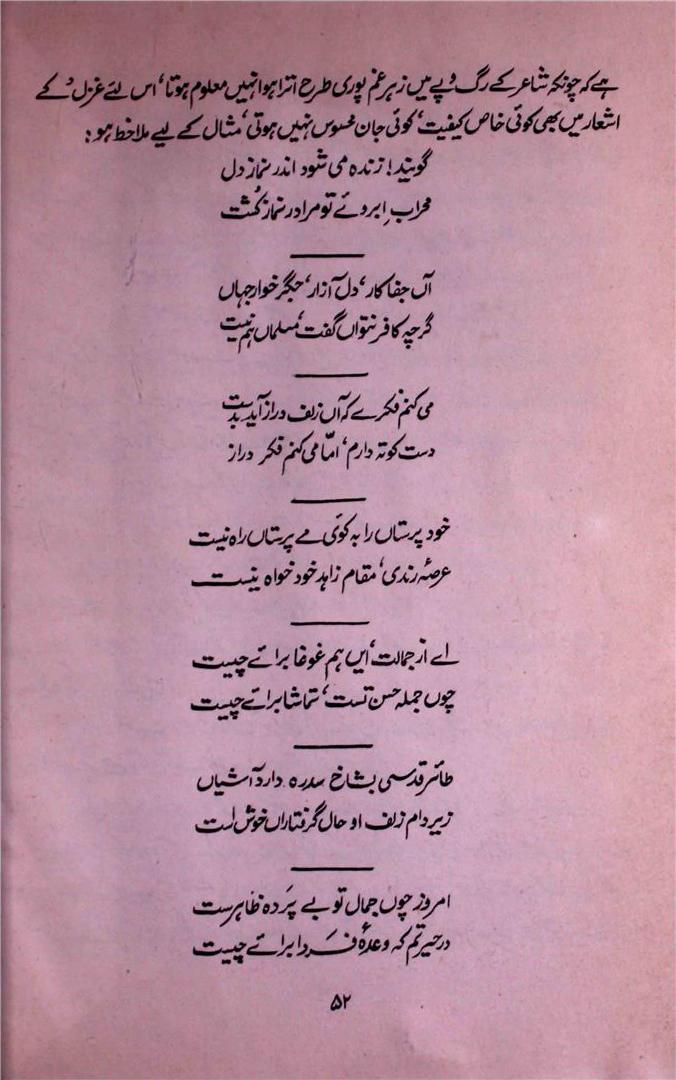 ہے کہ چونکہ شاعر کے رگ و پے میں زہر غم پوری طرح اترا ہوا نہیں معلوم ہوتا، اس لئے غزل کے
اشعار میں بھی کوئی خاص کیفیت، کوئی جان محسوس نہیں ہوتی، مثال کے لیے ملاحظہ ہو:
گویند! زندہ می شود اندر نماز دل
محرابِ ابروئے تو مرا در نماز کُشت
آں جفا کار، دل آزار، جگر خوار جہاں
گرچہ کافر نتواں گفت، مسلماں ہم نیست
می کنم فکرے کہ آں زلف دراز آید بدست
دست کوتہ دارم، امّا می کنم فکر دراز
خود پرستاں را بہ کوئی مے پرستاں راہ نیست
عرصۂ رندی، مقام زاہد خود خواہ نیست
اے از جمالت، ایں ہم غوغا برائے چیست
چوں جملہ حسن تست، تماشا برائے چیست
طائر قدسی بشاخ سدرہ دارد آشیاں
زیر دام زلف او حال گرفتاراں خوش است
امروز چوں جمال تو بے پَردہ ظاہرست
در حیرتم کہ وعدۂ فَردا برائے چیست
۵۲